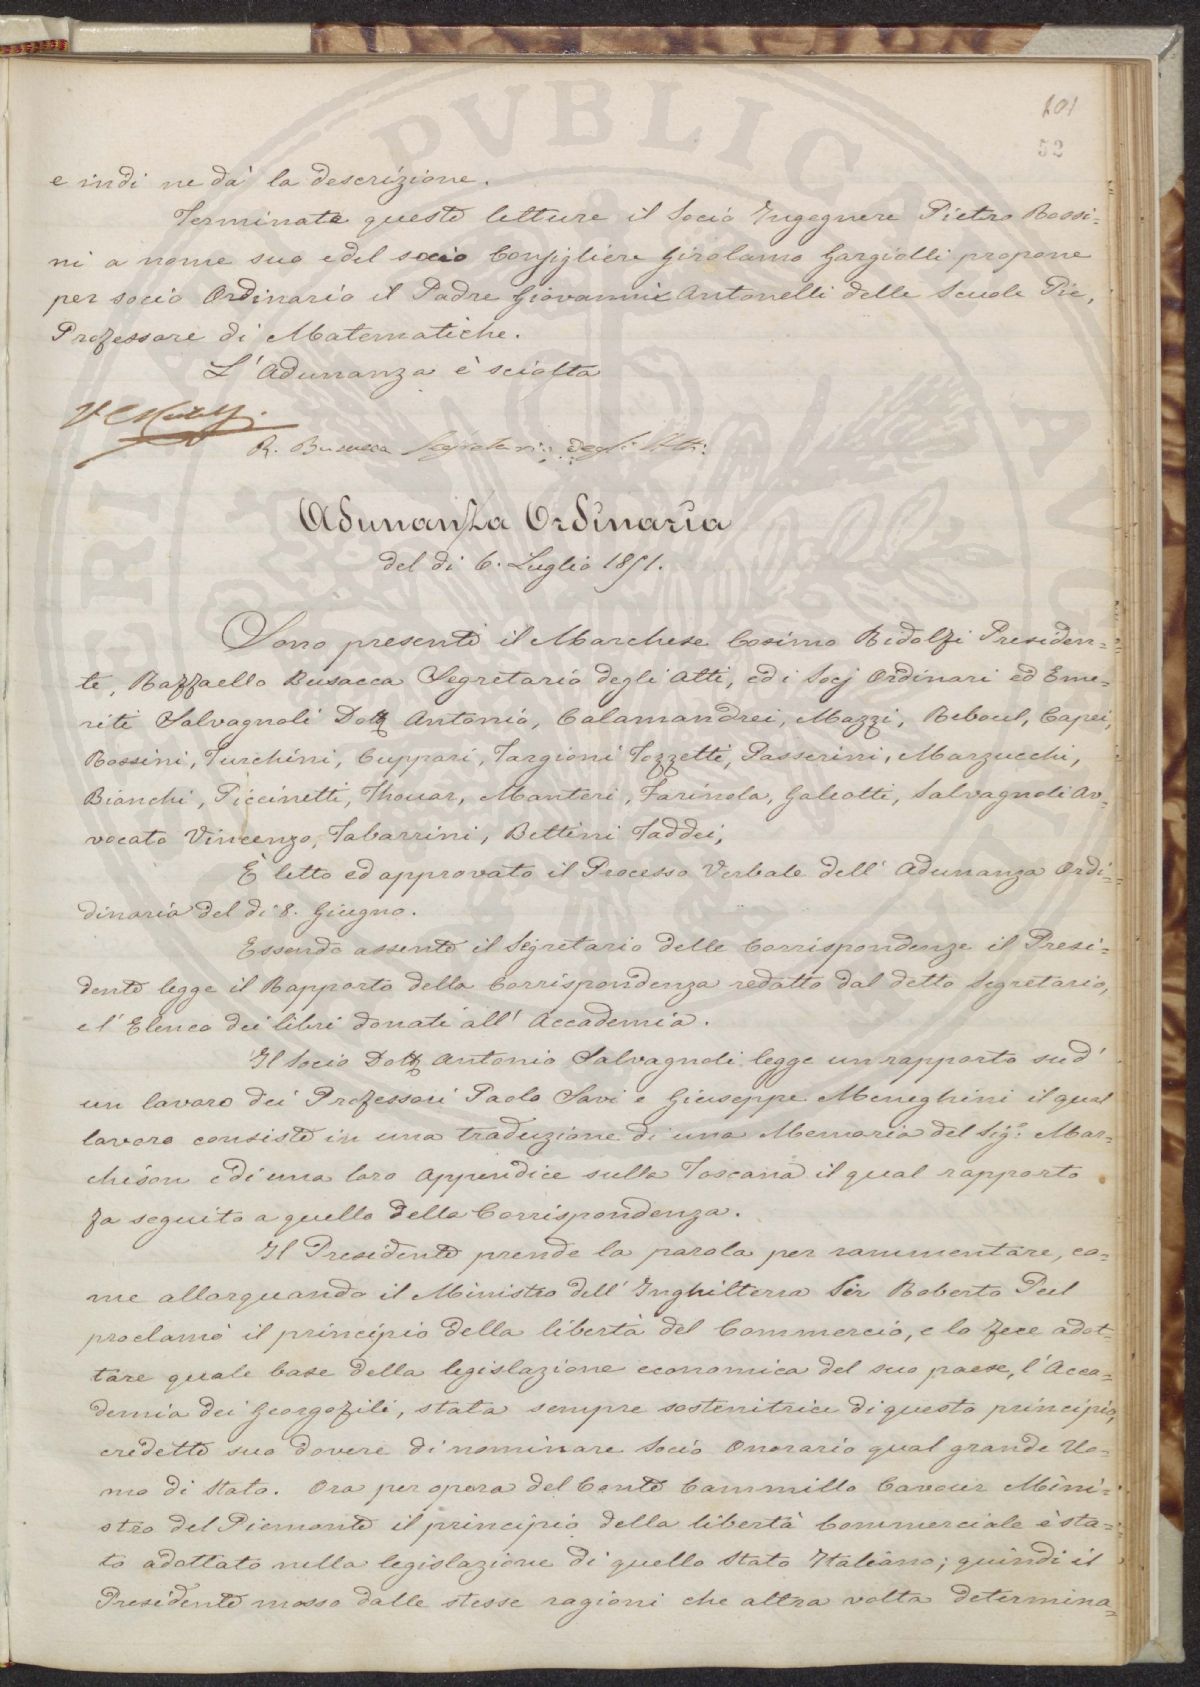 101
52
e indi ne dà la descrizione.
Terminate queste letture il Socio Ingegnere Pietro Rossi=
ni a nome suo e del socio Consigliere Girolamo Gargiolli propone
per socio Ordinario il Padre Giovanni Antonelli delle Scuole Pie,
Professore di Matematiche.
L'Adunanza è sciolta
R. Busacca Segretario degli Atti
Adunanza Ordinaria
del dì 6. Luglio 1851.
Sono presenti il Marchese Cosimo Ridolfi Presiden=
te, Raffaello Busacca Segretario degli Atti, ed i Socj Ordinari ed Eme=
riti Salvagnoli Dott Antonio, Calamandrei, Mazzi, Reboul, Capei,
Rossini, Turchini, Cuppari, Targioni Tozzetti, Passerini, Marzucchi,
Bianchi, Piccinetti, Thouar, Manteri, Farinola, Galeotti, Salvagnoli Av=
vocato Vincenzo, Tabarrini, Bettini Taddei,
È letto ed approvato il Processo Verbale dell'Adunanza Ordi=
dinaria del dì 8. Giugno.
Essendo assente il Segretario delle Corrispondenze il Presi=
dente legge il Rapporto della Corrispondenza redatto dal detto Segretario,
e l'Elenco dei libri donati all'Accademia.
Il Socio Dott Antonio Salvagnoli legge un rapporto su d'
un lavoro dei Professori Paolo Savi e Giuseppe Meneghini il qual
lavoro consiste in una traduzione di una Memoria del Sigr. Mar=
chison e di una loro Appendice sulla Toscana il qual rapporto
fa seguito a quello della Corrispondenza.
Il Presidente prende la parola per rammentare, co=
me allorquando il Ministro dell'Inghilterra Sir Roberto Peel
proclamò il principio della libertà del Commercio, e lo fece adot=
tare quale base della legislazione economica del suo paese, l'Acca=
demia dei Georgofili, stata sempre sostenitrice di questo principio,
credette suo dovere di nominare Socio Onorario qual grande Uo=
mo di Stato. Ora per opera del Conte Cammillo Cavour Mini=
stro del Piemonte il principio della libertà Commerciale è sta=
to adottato nella legislazione di quello Stato Italiano; quindi il
Presidente mosso dalle stesse ragioni che altra volta determina=